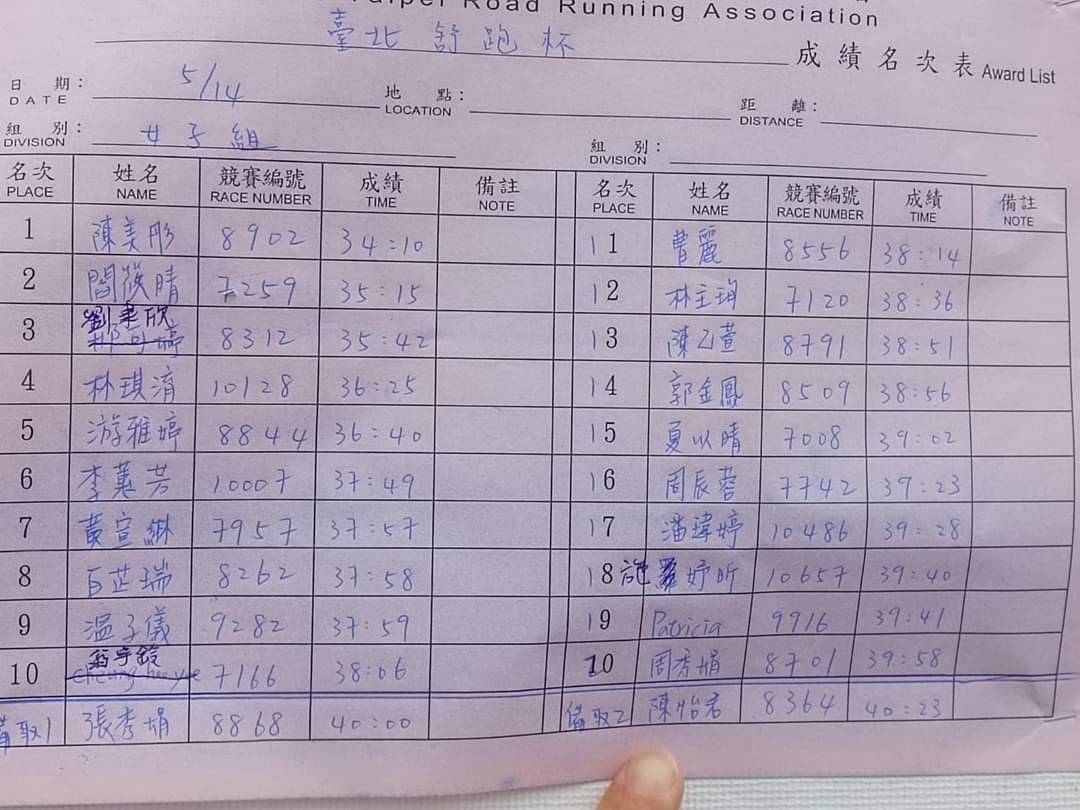 Taipei Road Running Association
臺北舒跑杯 成績名次表 Award List
日期: DATE 5/14 地點: LOCATION 距離: DISTANCE
組別: DIVISION 女子組 組別: DIVISION
名次 PLACE 姓名 NAME 競賽編號 RACE NUMBER 成績 TIME 備註 NOTE 名次 PLACE 姓名 NAME 競賽編號 RACE NUMBER 成績 TIME 備註 NOTE
1 陳美彤 8902 34:10 11 曹麗 8556 38:14
2 閻筱晴 7259 35:15 12 林主珣 7120 38:36
3 劉聿欣 8312 35:42 13 陳乙萱 8791 38:51
4 林琪淯 10128 36:25 14 郭金鳳 8509 38:56
5 游雅婷 8844 36:40 15 夏以晴 7008 39:02
6 李蕙芳 10007 37:49 16 周辰蓉 7742 39:23
7 黃宣綝 7957 37:57 17 潘瑋婷 10486 39:28
8 白芷瑞 8262 37:58 18 妤昕 10657 39:40
9 溫子儀 9282 37:59 19 Patricia 9916 39:41
10 翁宇 7166 38:06 20 周秀娟 8701 39:58
備取1 張秀娟 8868 40:00 備取2 陳怡君 8364 40:23